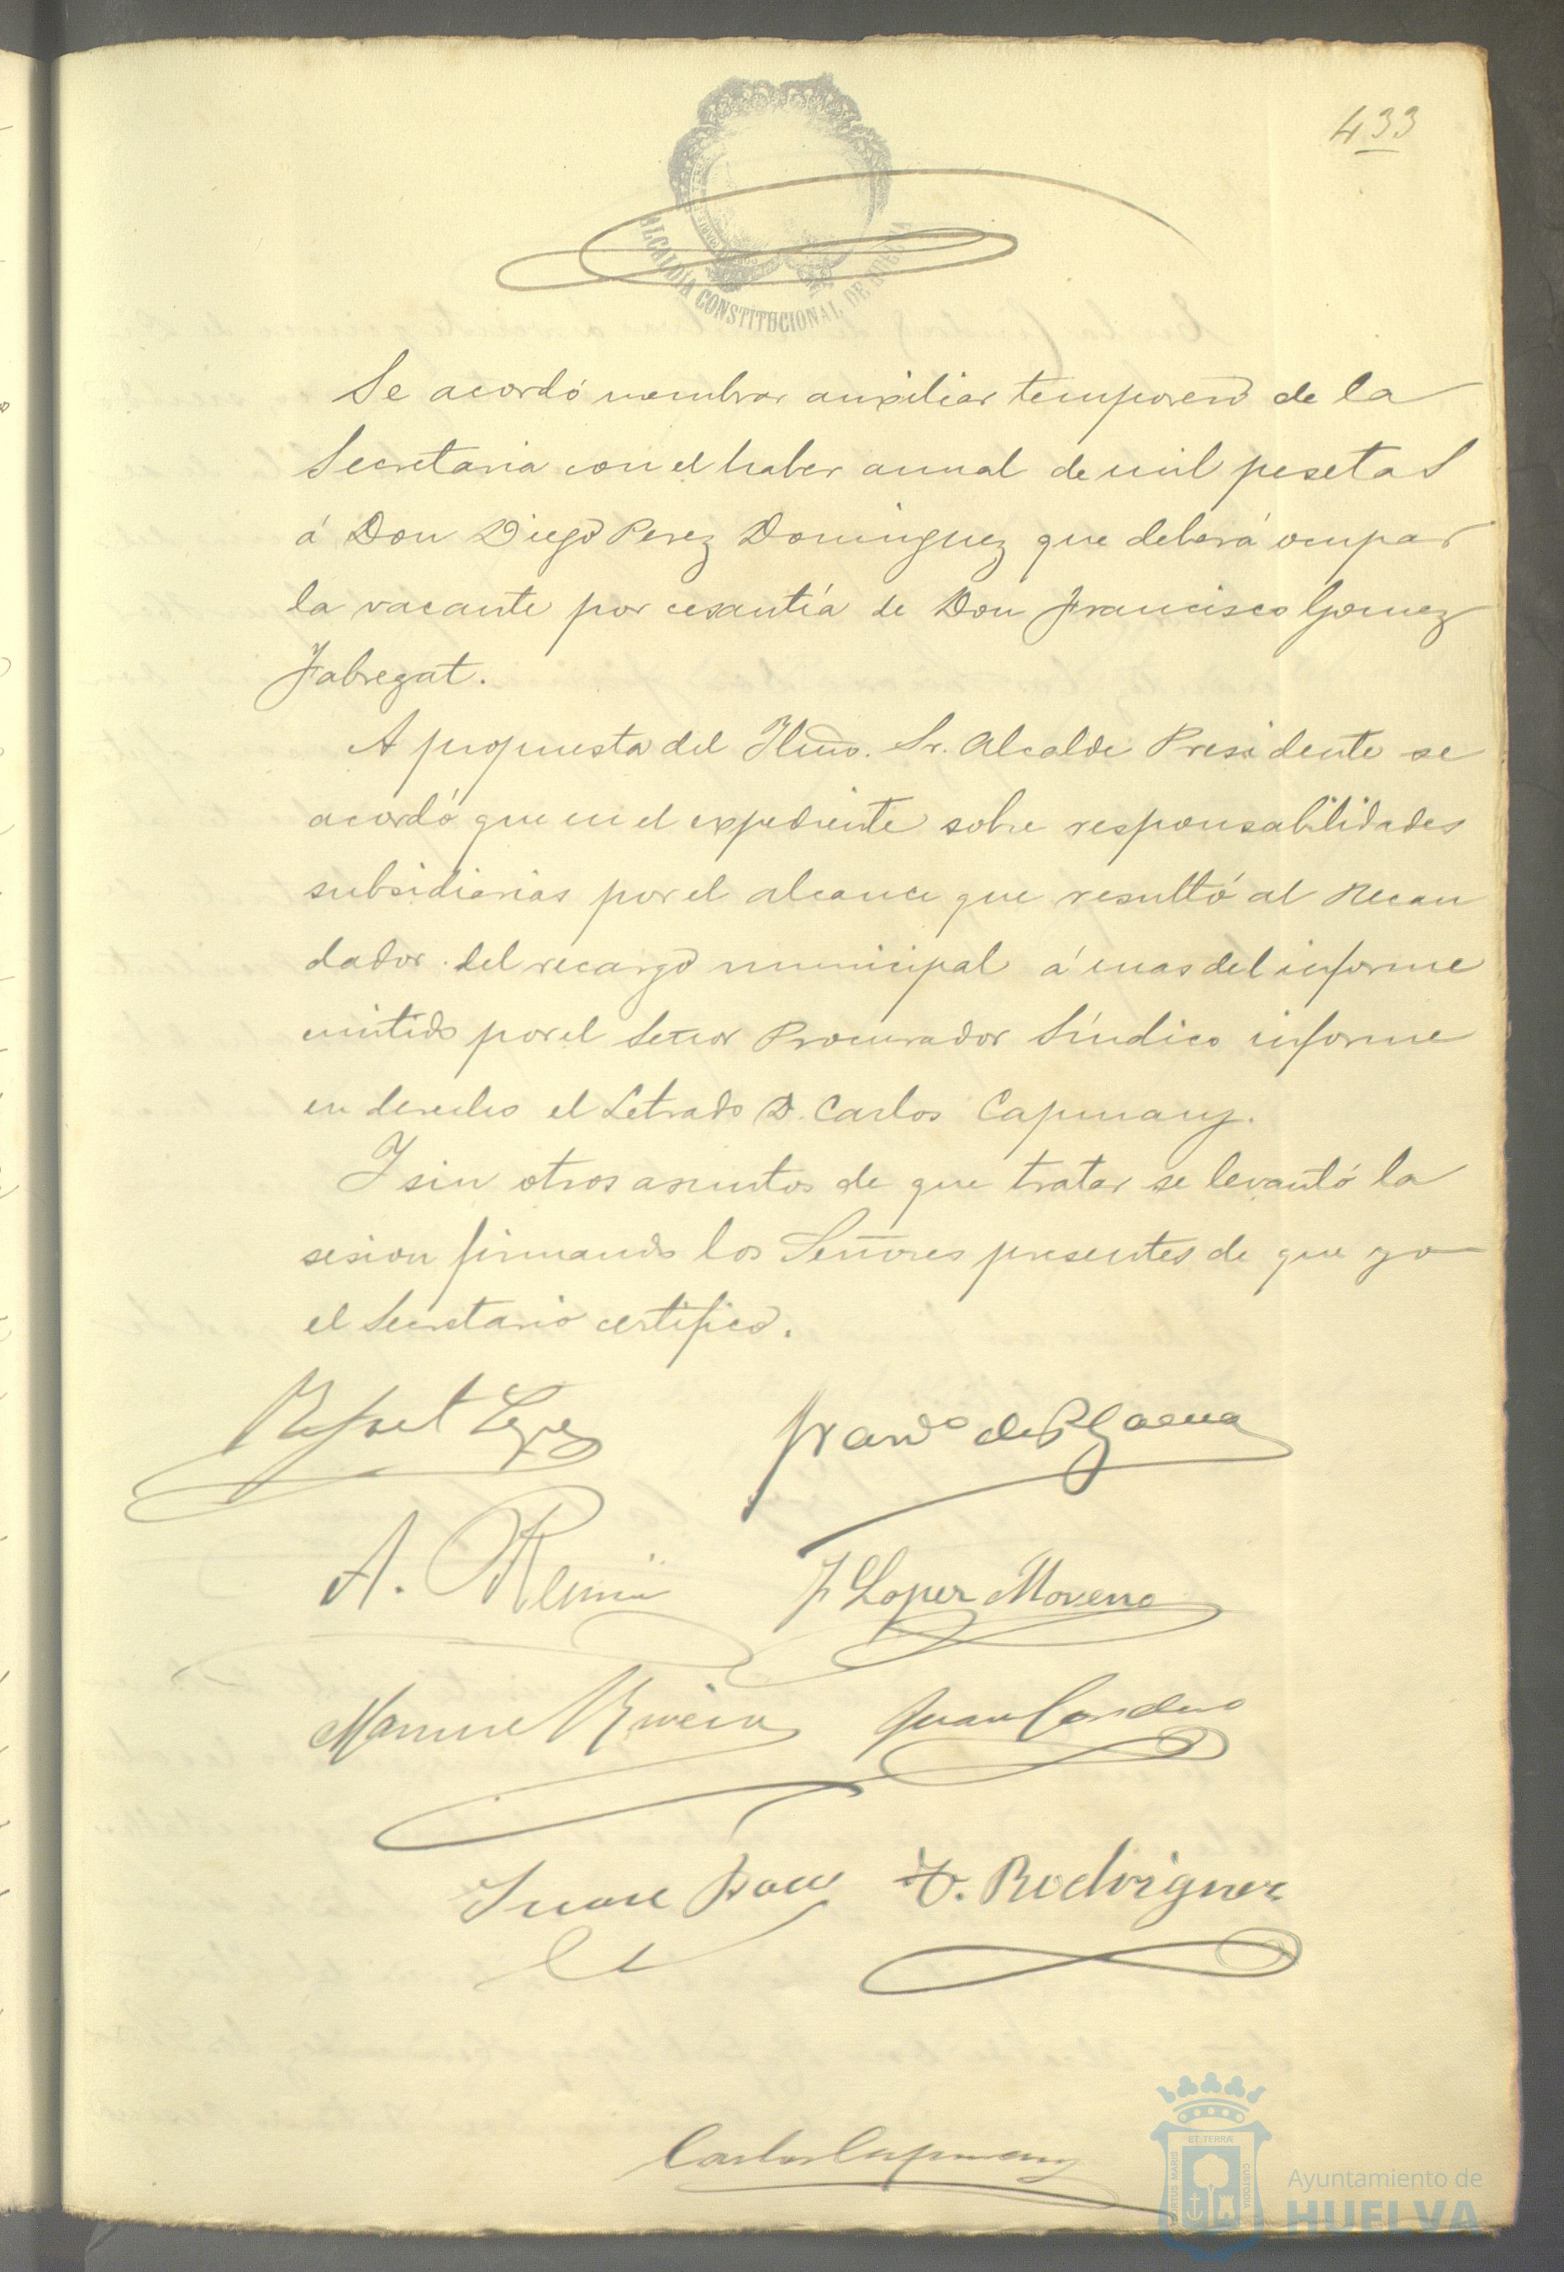 433
ALCALDÍA CONSTITUCIONAL DE HUELVA
Se acordó nombrar auxiliar temporero de la
Secretaria con el haber anual de mil pesetas
á Don Diego Perez Dominguez que deberá ocupar
la vacante por cesantía de Don Francisco Gomez
Fabregat.
A propuesta del Iltmo. Sr. Alcalde Presidente se
acordó que en el expediente sobre responsabilidades
subsidiarias por el alcance que resultó al Recau
dador del recargo municipal á mas del informe
emitido por el Señor Procurador Síndico informe
en derecho el Letrado D. Carlos Capmany.
Y sin otros asuntos de que tratar se levantó la
sesion firmando los Señores presentes de que yo
el Secretario certifico.
Rafael Lopez
Franco de P. Gaena
A. 
F Lopez Moreno
Manuel Rivera
Juan Cordero
Juan
F. Rodriguez
Carlos Capmany
ET TERRÆ
PORTUS MARIS
CUSTODIA
Ayuntamiento de
HUELVA